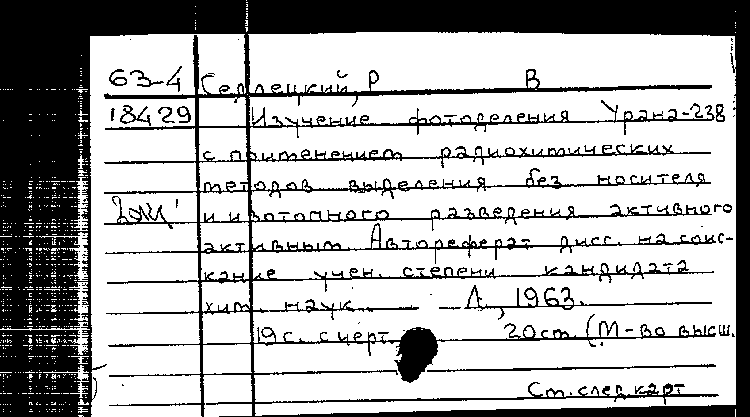 63-4 Седлецкий, Р В
18429 Изучение фотоделения Урана-238
с применением радиохимических
методов выделения без носителя
и изотопного разведения активного
активным. Автореферат дисс. на соис-
кание учен. степени кандидата
хим. наук. Л, 1963.
19 с. с черт. 20 см. (М-во высш.
См. след. карт